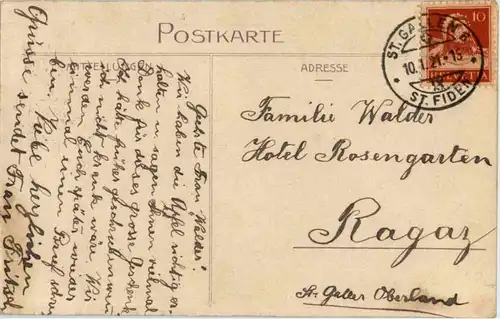 POSTKARTE
MITTEILUNGEN
ADRESSE
10
ST. GALLEN 8
10.1.21.-15
ST. FIDEN
Geehrte Frau Walder!
Wir haben die Äpfel richtig er-
halten u sagen Ihnen vielmal
Dank für dieses grosse Geschenk
Ich hätte früher geschrieben wen
ich nicht krank wäre. Wir
werden Euch später wieder
einmal einen Brief schrei
ben. Viele herzlichen
Grüsse sendet Frau
Familie Walder
Hotel Rosengarten
Ragaz
St. Galler Oberland